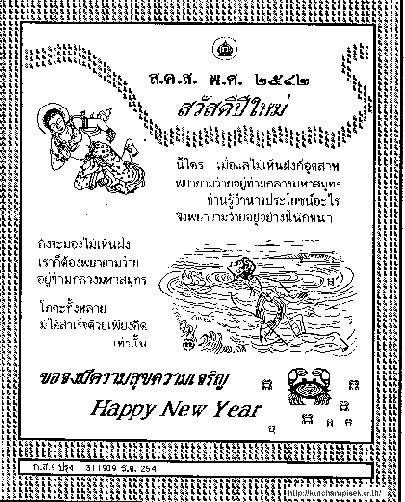 ส.ค.ส. พ.ศ. ๒๕๔๒
สวัสดีปีใหม่
นี่ใคร เมื่อแลไม่เห็นฝั่งก็อุตสาห
พยายามว่ายอยู่ท่ามกลางมหาสมุทร
ท่านรู้อำนาจประโยชน์อะไร
จึงพยายามว่ายอยู่อย่างนี้นักหนา
ถึงจะมองไม่เห็นฝั่ง
เราก็ต้องพยายามว่าย
อยู่ท่ามกลางมหาสมุทร
โภคะทั้งหลาย
มิได้สำเร็จด้วยเพียงคิด
เท่านั้น
ขอจงมีความสุขความเจริญ
Happy New Year
ก.ส. ปรุง ธ.ค. 254
http://kanchanapisek.or.th/